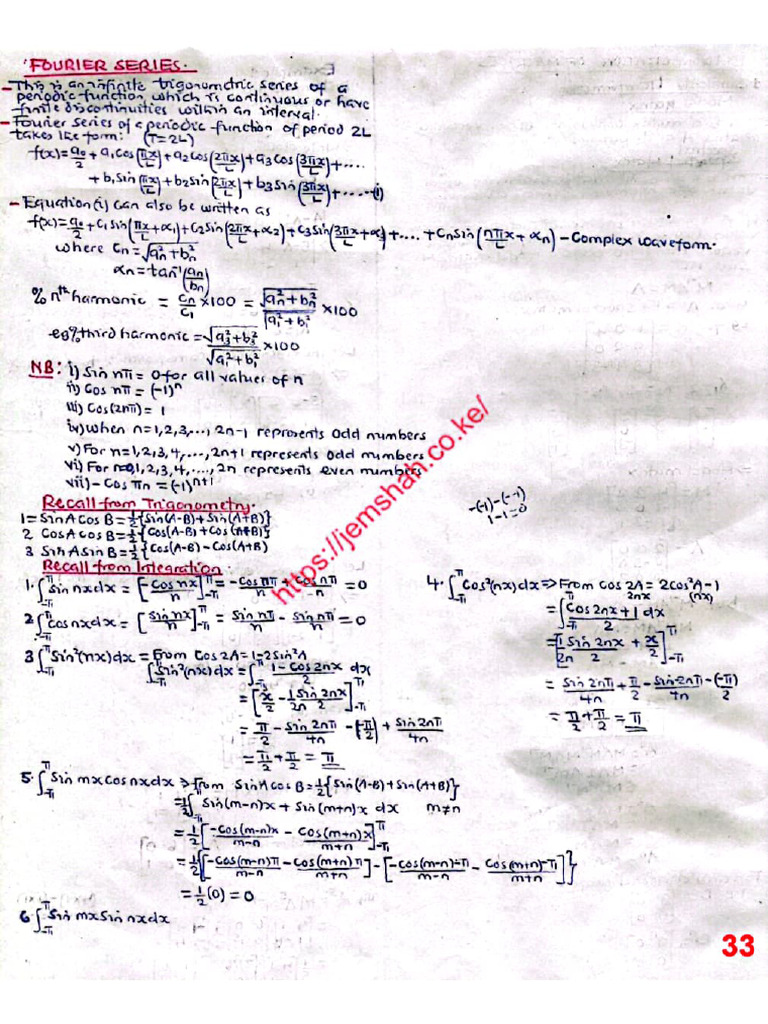 FOURIER SERIES.
- This is an infinite trigonometric series of a
periodic function which is continuous or have
finite discontinuities within an interval.
- Fourier series of a periodic function of period 2L
takes the form: (T=2L)
f(x)=a₀/2 + a₁cos(πx/L)+a₂cos(2πx/L)+a₃cos(3πx/L)+....
+ b₁sin(πx/L)+b₂sin(2πx/L)+b₃sin(3πx/L)+.....(i)
- Equation(i) can also be written as
f(x)=a₀/2+C₁sin(πx/L+α₁)+C₂sin(2πx/L+α₂)+C₃sin(3πx/L+α)+....+Cₙsin(nπx/L+αₙ) - Complex waveform.
where Cₙ=√(aₙ²+bₙ²)
αₙ=tan⁻¹(aₙ/bₙ)
% nᵗʰ harmonic = Cₙ/C₁ x100 = √(aₙ²+bₙ²)/√(a₁²+b₁²) x100
eg % third harmonic = √(a₃²+b₃²)/√(a₁²+b₁²) x100
NB: i) Sin nπ = 0 for all values of n
ii) Cos nπ = (-1)ⁿ
iii) Cos(2nπ) = 1
iv) when n=1,2,3,..., 2n-1 represents odd numbers
v) For n=1,2,3,4,...., 2n+1 represents odd numbers
vi) For n=0,1,2,3,4,...., 2n represents even numbers
vii) - Cos πn = (-1)ⁿ⁺¹
-(-1)-(-1)
1-1=0
https://jemshah.co.ke/
Recall from Trigonometry.
1= SinA Cos B = ½{Sin(A-B)+Sin(A+B)}
2 CosA Cos B = ½{Cos(A-B)+Cos(A+B)}
3 SinA Sin B = ½{Cos(A-B)-Cos(A+B)
Recall from Integration
1. ∫_{-π}^{π} Sin nx dx = [-Cos nx/n]_{-π}^{π} = -Cos nπ/n + Cos nπ/n = 0
2. ∫_{-π}^{π} Cos nx dx = [Sin nx/n]_{-π}^{π} = Sin nπ/n - Sin nπ/n = 0
3 ∫_{-π}^{π} Sin²(nx)dx = From Cos 2A = 1-2Sin²A
∫_{-π}^{π} Sin²(nx)dx = ∫_{-π}^{π} (1-Cos 2nx)/2 dx
= [x/2 - 1/2n Sin 2nx/2]_{-π}^{π}
= π/2 - Sin 2nπ/4n - (-π/2) + Sin 2nπ/4n
= π/2 + π/2 = π
4. ∫_{-π}^{π} Cos²(nx)dx ⇒ From Cos 2A = 2Cos²A-1
2nx (nx)
= ∫_{-π}^{π} (Cos 2nx + 1)/2 dx
= [1/2n Sin 2nx/2 + x/2]_{-π}^{π}
= Sin 2nπ/4n + π/2 - Sin 2nπ/4n - (-π)/2
= π/2 + π/2 = π
5. ∫_{-π}^{π} Sin mx cos nx dx ⇒ From SinA Cos B = ½{Sin(A-B)+Sin(A+B)}
= ½∫_{-π}^{π} Sin(m-n)x + Sin(m+n)x dx m≠n
= ½[-Cos(m-n)x/m-n - Cos(m+n)x/m+n]_{-π}^{π}
= ½{[-Cos(m-n)π/m-n - Cos(m+n)π/m+n] - [-Cos(m-n)-π/m-n - Cos(m+n)-π/m+n]}
= ½(0) = 0
6 ∫_{-π}^{π} Sin mx Sin nx dx
33